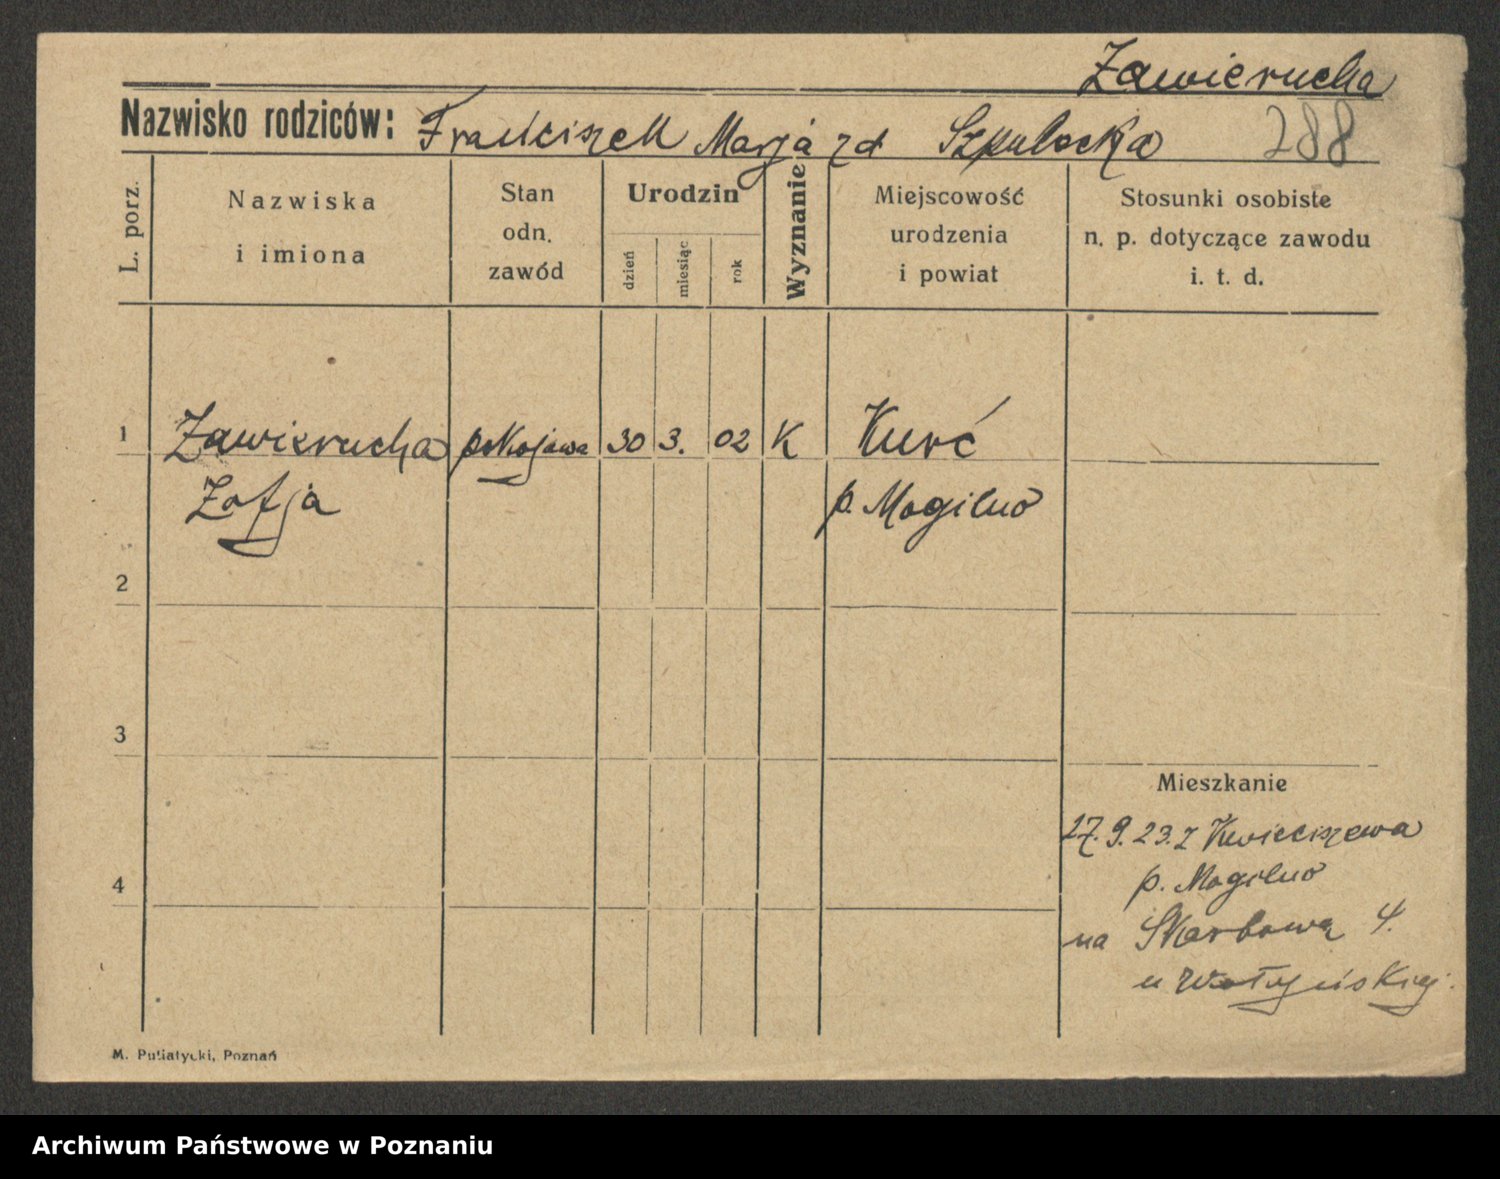 Zawierucha
Nazwisko rodziców: Franciszek Marja zd Szpulecka 288
L. porz.
Nazwiska
i imiona
Stan
odn.
zawód
Urodzin
dzień
miesiąc
rok
Wyznanie
Miejscowość
urodzenia
i powiat
Stosunki osobiste
n. p. dotyczące zawodu
i. t. d.
1 Zawierucha pokojowa 30 3. 02 K Kurć
Zofja p. Mogilno
2
3
Mieszkanie
27. 9. 23. z Kwieciszewa
p. Mogilno
4
na Skarbową 4.
u Wołyńskiej.
M. Putiatycki, Poznań
Archiwum Państwowe w Poznaniu